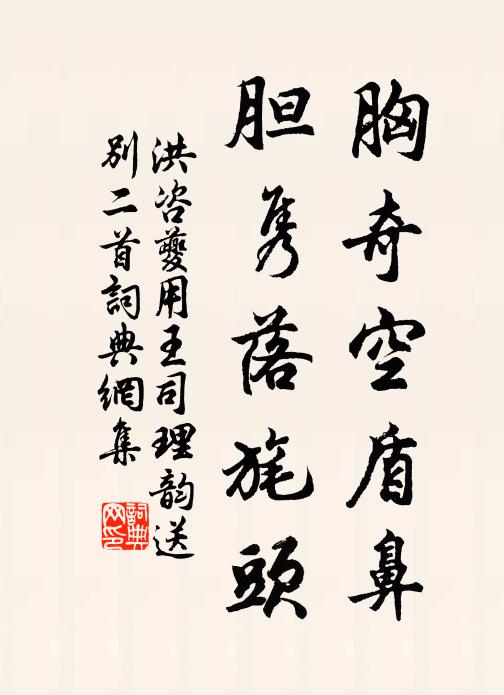 胸奇空盾鼻
胆隽落旄頭
洪咨夔用王司理韵送
别二首詞典網集
詞典网印